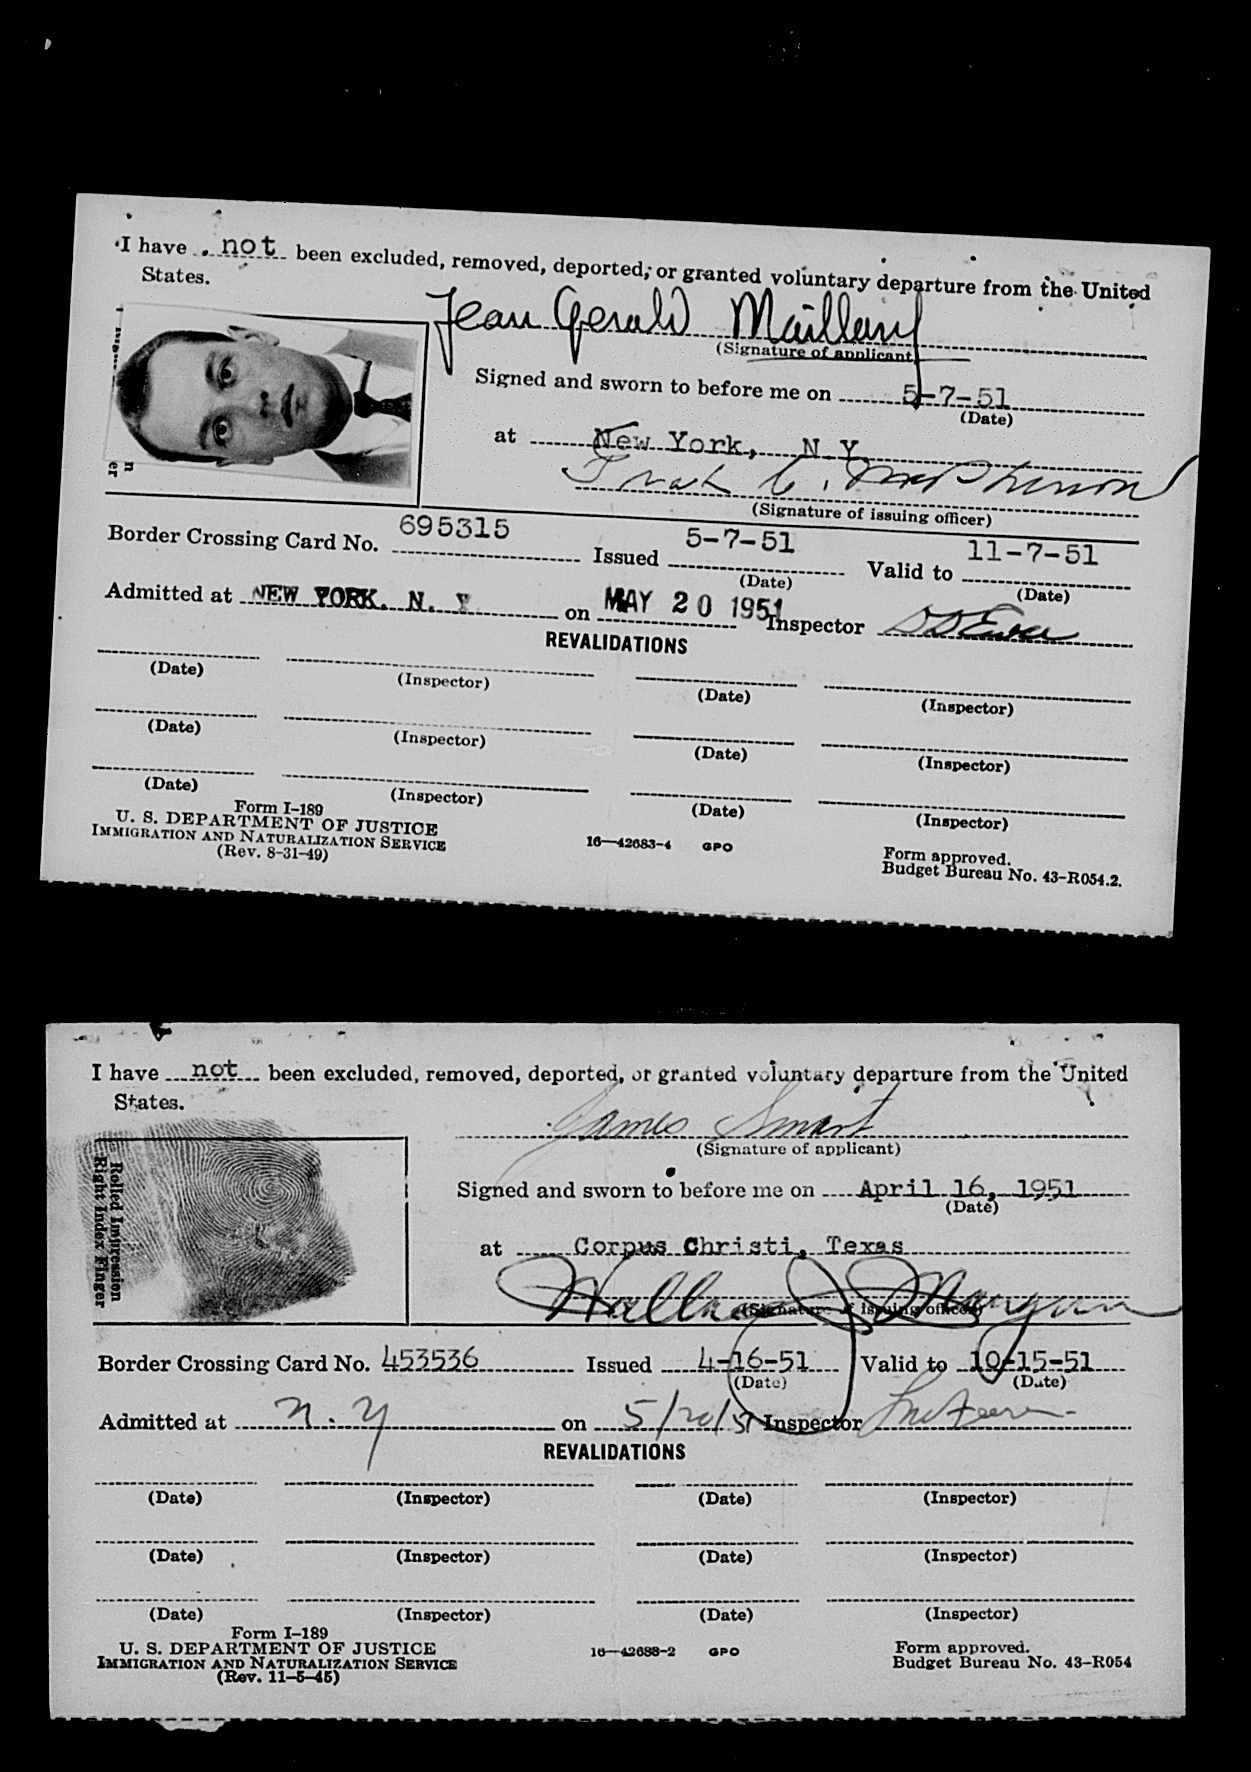 I have not been excluded, removed, deported, or granted voluntary departure from the United
States.
Jean Gerald
(Signature of applicant)
Signed and sworn to before me on 5-7-51
(Date)
at New York, N Y.
(Signature of issuing officer)
Border Crossing Card No. 695315 Issued 5-7-51 Valid to 11-7-51
(Date) (Date)
Admitted at NEW YORK. N. Y on MAY 20 1951 Inspector
REVALIDATIONS
(Date) (Inspector) (Date) (Inspector)
(Date) (Inspector) (Date) (Inspector)
(Date) (Inspector) (Date) (Inspector)
Form I-189
U. S. DEPARTMENT OF JUSTICE
IMMIGRATION AND NATURALIZATION SERVICE
(Rev. 8-31-49)
16—42683-4 GPO
Form approved.
Budget Bureau No. 43-R054.2.
I have not been excluded, removed, deported, or granted voluntary departure from the United
States.
James Smart
(Signature of applicant)
Rolled Impression
Right Index Finger
Signed and sworn to before me on April 16, 1951
(Date)
at Corpus Christi, Texas
Wallace J Morgan
(Signature of issuing officer)
Border Crossing Card No. 453536 Issued 4-16-51 Valid to 10-15-51
(Date) (Date)
Admitted at N. Y on 5/20/51 Inspector
REVALIDATIONS
(Date) (Inspector) (Date) (Inspector)
(Date) (Inspector) (Date) (Inspector)
(Date) (Inspector) (Date) (Inspector)
Form I-189
U. S. DEPARTMENT OF JUSTICE
IMMIGRATION AND NATURALIZATION SERVICE
(Rev. 11-5-45)
16—42688-2 GPO
Form approved.
Budget Bureau No. 43-R054